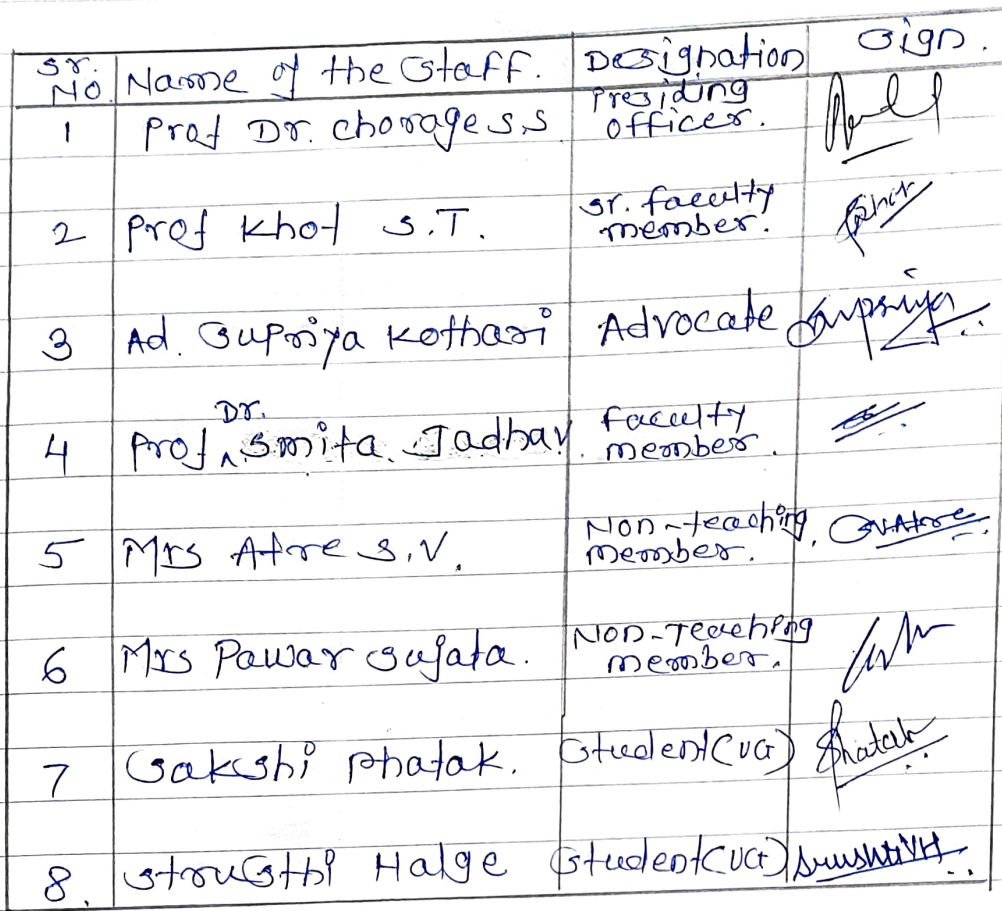 Sr. No. Name of the Staff. Designation Sign.
1 Prof Dr. Chorage S.S. Presiding officer.
2 Prof Khot S.T. Sr. faculty member.
3 Ad. Supriya Kothari Advocate Supriya
4 Prof Dr. Smita Jadhav. faculty member.
5 Mrs Atre S.V. Non-teaching member. SVAtre
6 Mrs Pawar Sujata. Non-Teaching member.
7 Sakshi Phatak. Student(UG) Phatak
8. Strusthi Halge Student(UG) SrushtiVH